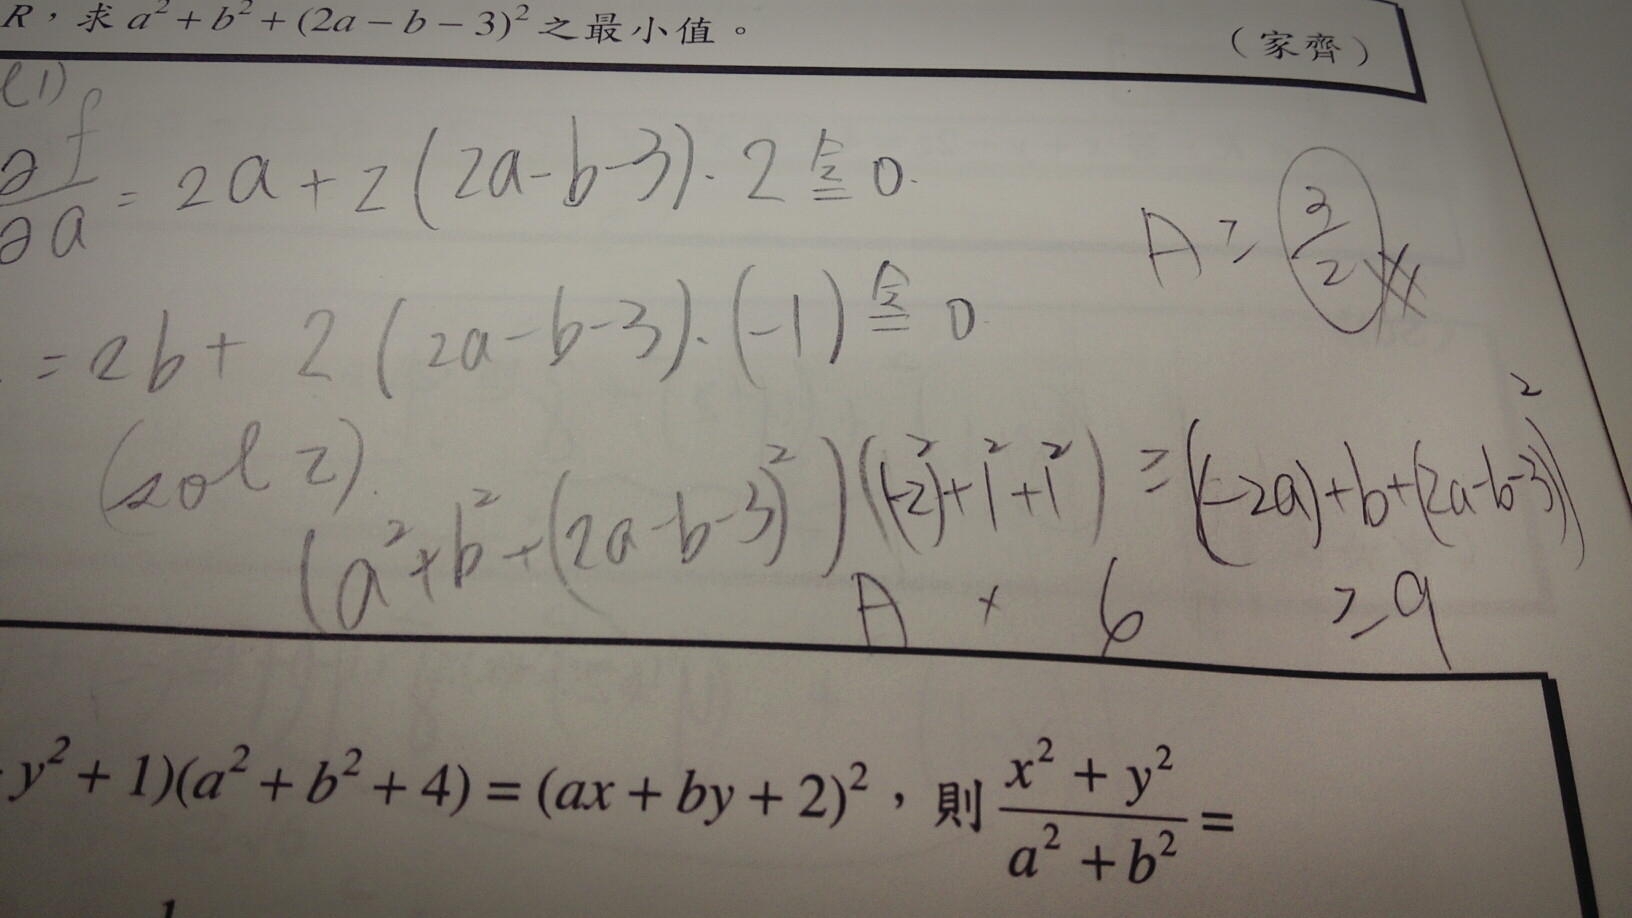 R，求 a² + b² + (2a − b − 3)² 之最小值。
（家齊）
l1)
∂f/∂a = 2a + 2(2a-b-3)·2 令= 0.
A ≥ 3/2
= 2b + 2(2a-b-3)·(-1) 令= 0
(sol 2).
(a²+b²+(2a-b-3)²)((-2)²+1²+1²) ≥ ((-2a)+b+(2a-b-3))²
A × 6 ≥ 9
y² + 1)(a² + b² + 4) = (ax + by + 2)²，則 (x² + y²)/(a² + b²) =